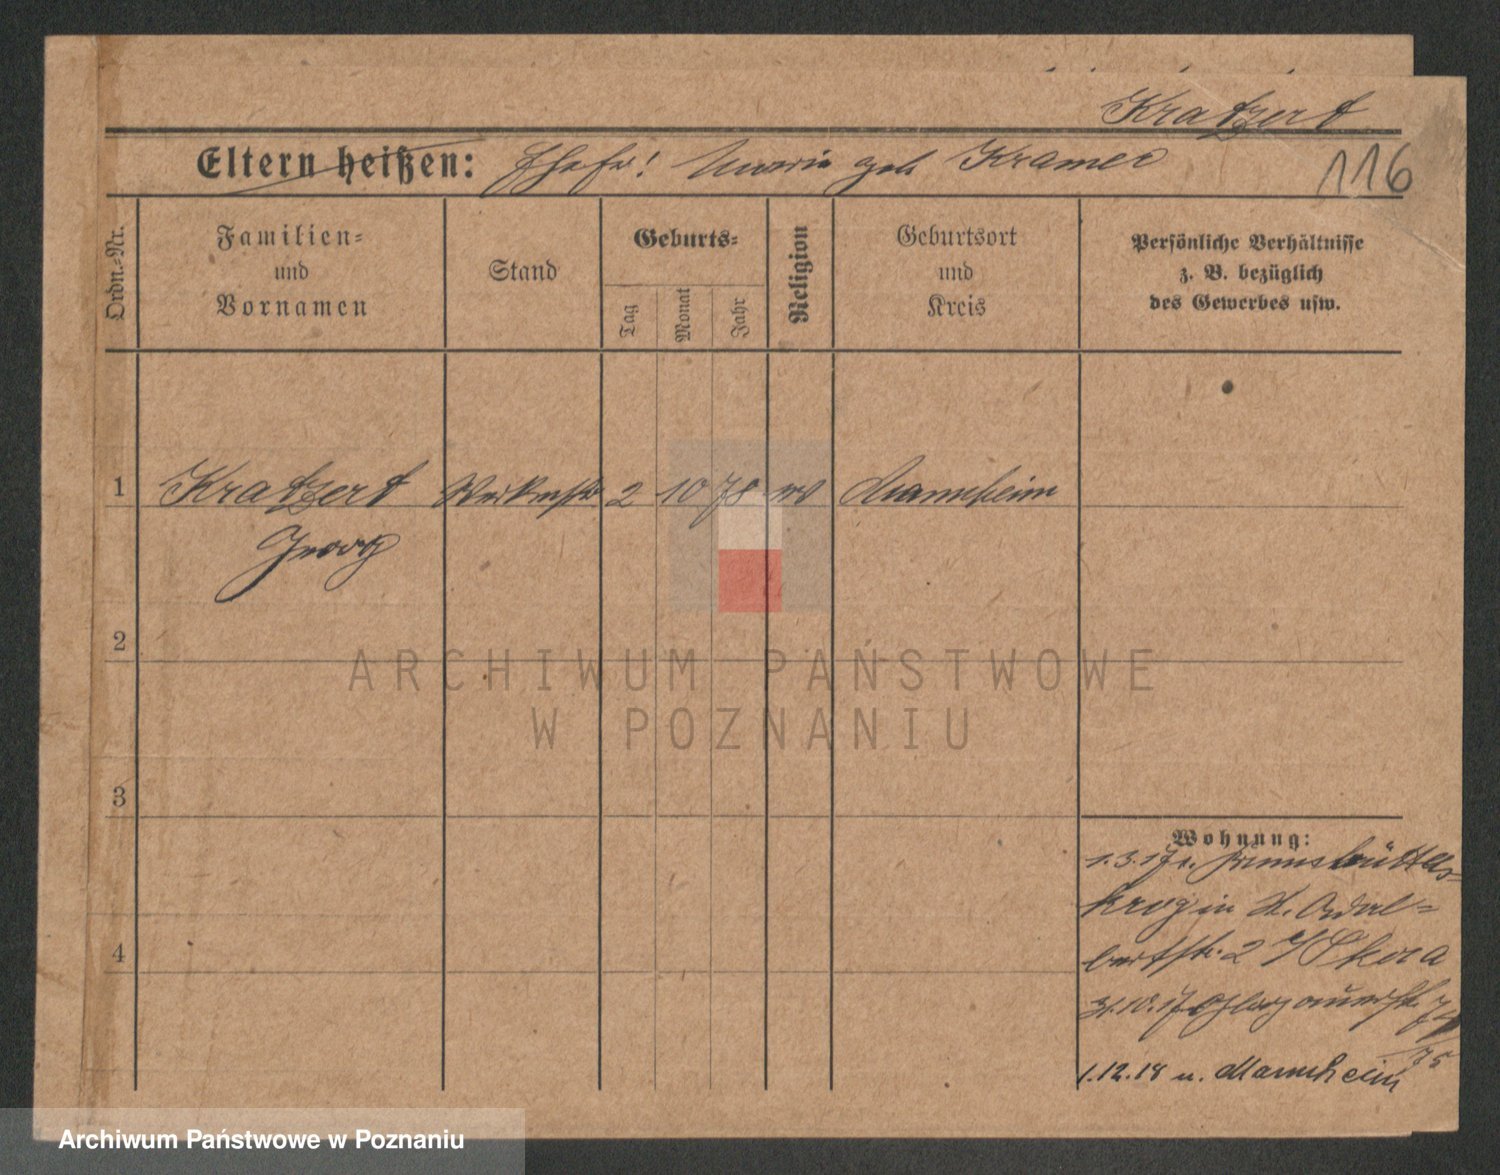 Kratzert
Eltern heißen: Ehefr! Maria geb Kramer
116
Ordn.-Nr.
Familien-
und
Vornamen
Stand
Geburts-
Tag
Monat
Jahr
Religion
Geburtsort
und
Kreis
Persönliche Verhältnisse
z. B. bezüglich
des Gewerbes usw.
1 Kratzert 2 10 78 ev Mannheim
Georg
2
ARCHIWUM PAŃSTWOWE
W POZNANIU
3
Wohnung:
1.3.17 v. Brunsbüttel-
krog in St. Adal-
4
bertstr. 2 Skora
31.10.17 Glogauerstr. 74
75
1.12.18 n. Mannheim
Archiwum Państwowe w Poznaniu